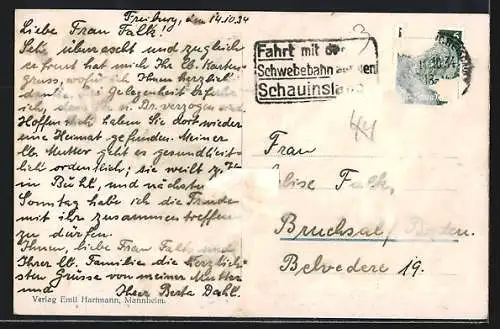 Freiburg, den 14.10.34
Liebe Frau Falk!
Sehr überrascht und zugleich
erfreut hat mich Ihr lb. Karten-
gruss, wofür ich Ihnen herzlich
danke. Gelegenheit
dass n. Br. verzogen
Hoffentlich haben Sie dort wieder
eine Heimat gefunden. Meiner
lb. Mutter geht es gesundheit-
lich ordentlich; sie weilt z. Zt.
in Bühl, und nächsten
Sonntag habe ich die Freude
mit ihr zusammentreffen
zu dürfen.
Ihnen, liebe Frau Falk und
Ihrer lb. Familie die herzlich-
sten Grüsse von meiner Mutter
und Ihrer Berta Dahl.
Verlag Emil Hartmann, Mannheim.
Fahrt mit der
Schwebebahn auf den
Schauinsland
Frau
Elise Falk,
Bruchsal/Baden.
Belvedere 19.